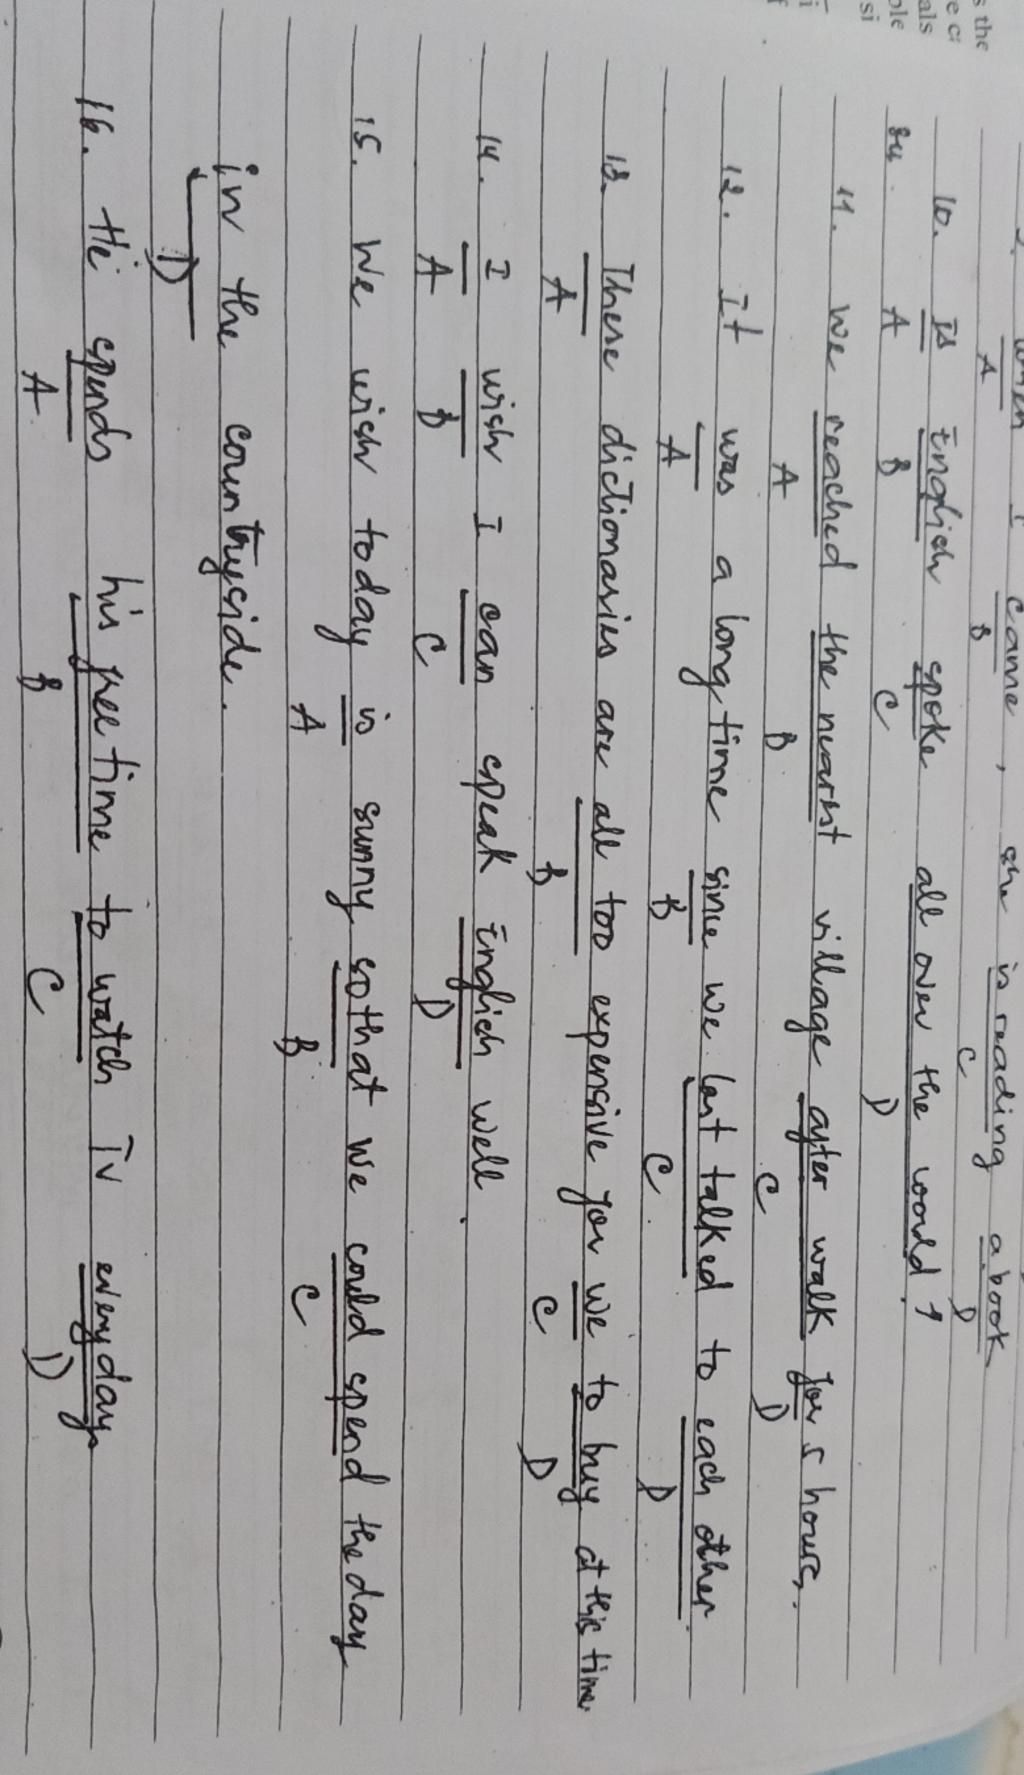 s the
e ci
als
ple
si
when I came, she is reading a book
A B C D
10. Is English spoke all over the world?
su. A B C D
11. We reached the nearest village after walk for 5 hours.
A B C D
12. It was a long time since we last talked to each other.
A B C D
13. These dictionaries are all too expensive for we to buy at this time.
A B C D
14. I wish I can speak English well.
A B C D
15. We wish today is sunny so that we could spend the day
A B C
in the countryside.
D
16. He spends his free time to watch TV everyday.
A B C D